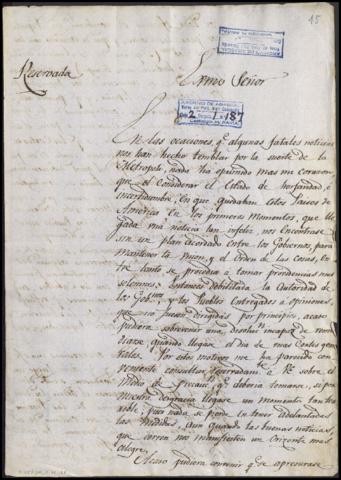 15
Reservada
Exmo Señor
2 1 187
En las ocaciones q.e algunas fatales noticias
nos han hecho temblar por la suerte de la
Metropoli, nada ha oprimido mas mi corazon,
que el considerar el Estado de horfandad, é
incertidumbre, en que quedaban estos Paises de
America en los primeros momentos, que lle
gada una noticia tan infeliz nos encontrase
sin un plan acordado entre los Gobiernos, para
mantener la union, y el orden de las cosas, en
tre tanto se procedia á tomar providencias mas
solemnes: Entonces debilitada la autoridad de
los Gob.nos, y los Pueblos entregados á opiniones,
que no fuesen dirigidas por principios, acaso
pudiera sobrevenir una incapaz de reme
diarse, quando llegase el dia de unas Cortes gene
rales. Por estos motivos me ha parecido con
veniente consultar reservadam.te á VE sobre el
Medio de precaver, q.e deberia tomarse, si por
nuestra desgracia llegare un momento tan
rable; pues nada se pierde en tener adelantadas
las medidas, aun quando las buenas noticias,
que corren nos manifiesten un Orizonte mas
alegre.
Acaso pudiera convenir q.e se apresurase